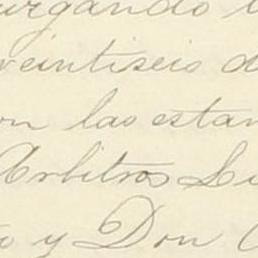 urgando
veintiseis d
on las estan
Arbitros Li
o y Don